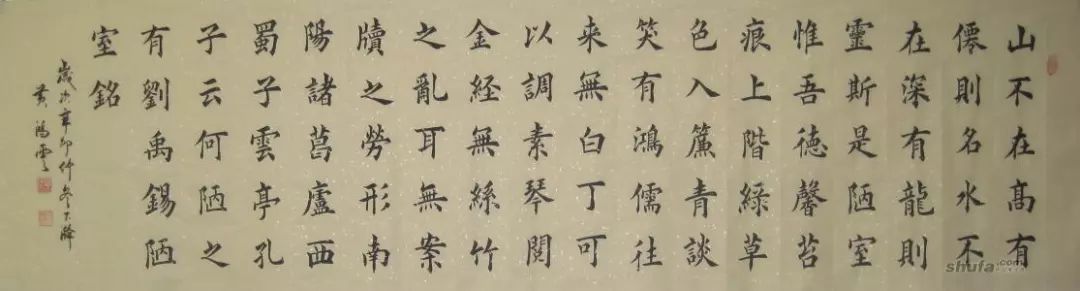 山不在高有
僊則名水不
在深有龍則
靈斯是陋室
惟吾德馨苔
痕上階綠草
色入簾青談
笑有鴻儒往
来無白丁可
以調素琴閱
金経無絲竹
之亂耳無案
牘之勞形南
陽諸葛廬西
蜀子雲亭孔
子云何陋之
有劉禹錫陋
室銘
歲次辛卯仲冬下
黄鴻雲
shufa.com